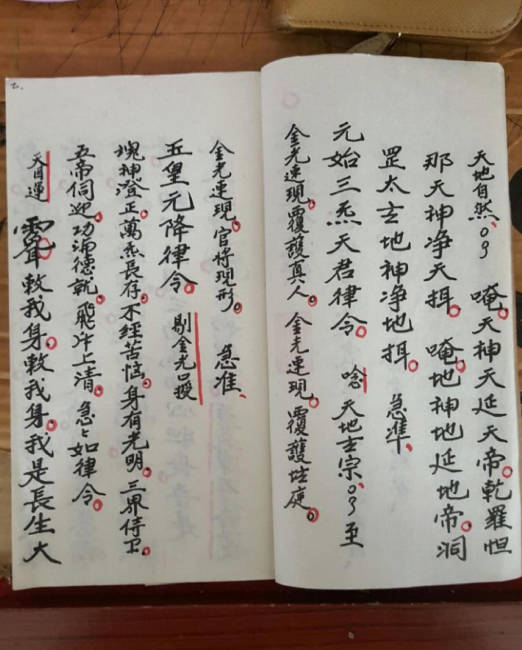 天地自然、 唵。天神天延天帝。乾羅怛
那天神净天揖。唵。地神地延地帝。洞
罡太玄地神净地揖。急準、
元始三炁天君律令。唸 天地玄宗、至
金光速現。覆護真人。金光速現。覆護坛庭。
金光速現。官将現形。急准、
玉皇元降律令。 剔金光品授
塊神澄正。萬炁長存。不經苦恼。身有光明。三界侍卫。
五帝伺迎。功滿德就。飛升上清。急々如律令。
天目運 敕我身。敕我身。我是長生大